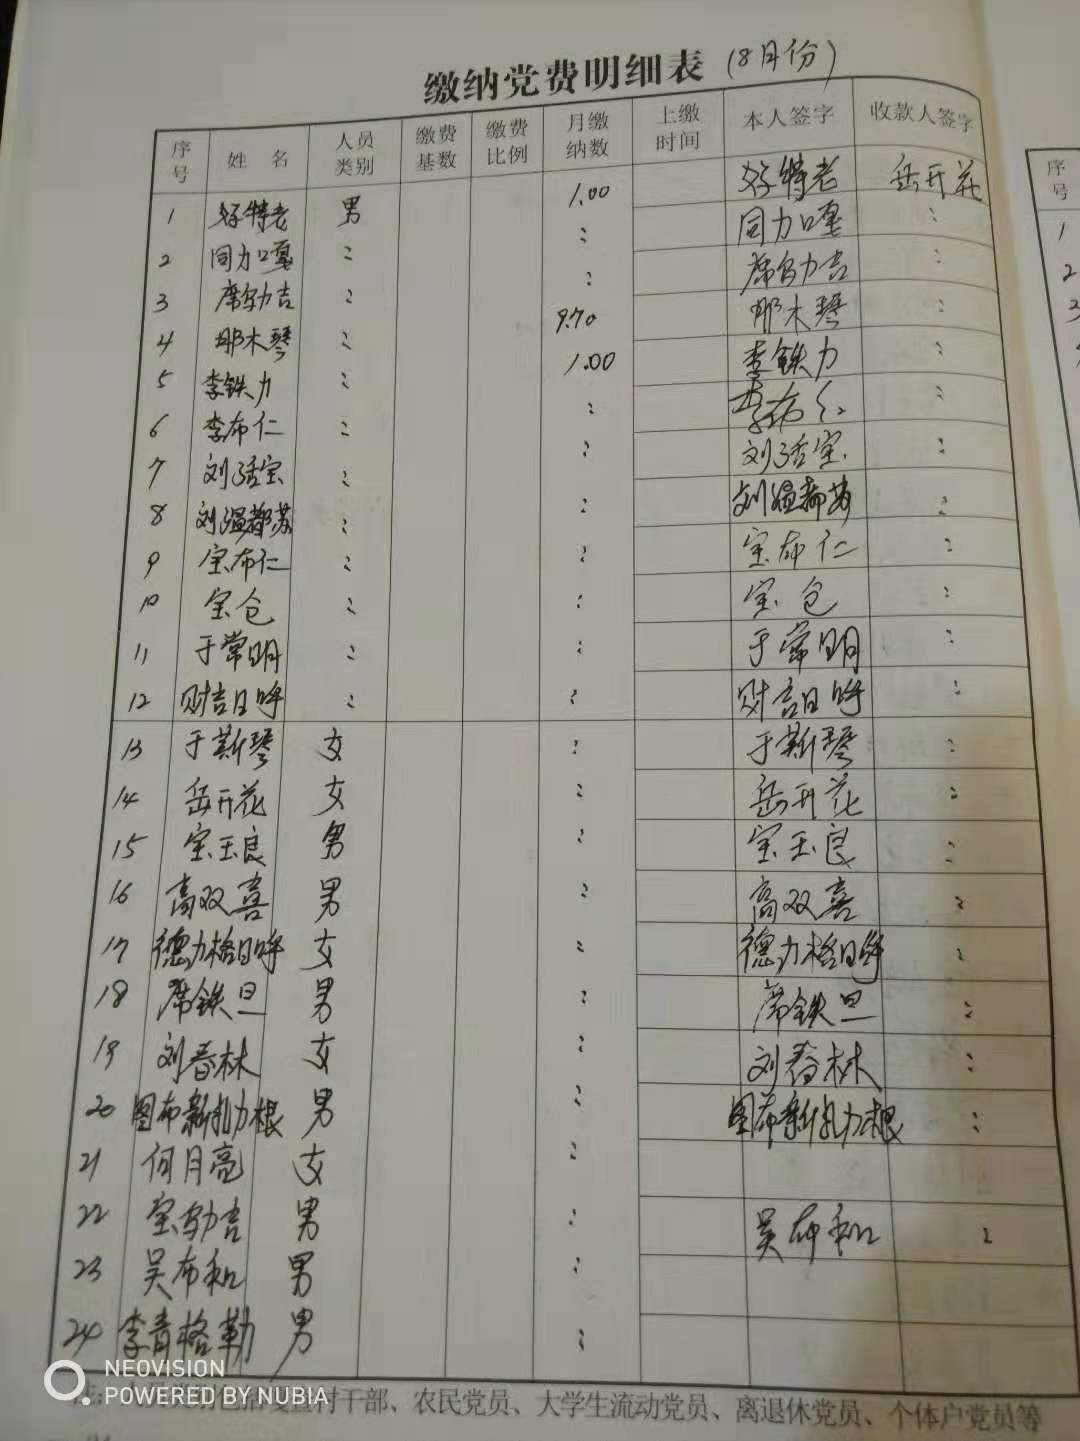 缴纳党费明细表 (8月份)
序号 姓名 人员类别 缴费基数 缴费比例 月缴纳数 上缴时间 本人签字 收款人签字
1 好特老 男 1.00 好特老 岳开花
2 同力嘎 〃 〃 同力嘎 〃
3 席乌力吉 〃 〃 席乌力吉 〃
4 那木琴 〃 9.70 那木琴 〃
5 李铁力 〃 1.00 李铁力 〃
6 李布仁 〃 〃 李布仁 〃
7 刘活宝 〃 〃 刘活宝 〃
8 刘温都苏 〃 〃 刘温都苏 〃
9 宝布仁 〃 〃 宝布仁 〃
10 宝仓 〃 〃 宝仓 〃
11 于常明 〃 〃 于常明 〃
12 财吉日呼 〃 〃 财吉日呼 〃
13 于斯琴 女 〃 于斯琴 〃
14 岳开花 女 〃 岳开花 〃
15 宝玉良 男 〃 宝玉良 〃
16 高双喜 男 〃 高双喜 〃
17 德力格日呼 女 〃 德力格日呼 〃
18 席铁旦 男 〃 席铁旦 〃
19 刘春林 女 〃 刘春林 〃
20 图布新扎力根 男 〃 图布新扎力根 〃
21 何月亮 女 〃
22 宝乌力吉 男 〃 吴布和 〃
23 吴布和 男 〃
24 李青格勒 男 〃
村干部、农民党员、大学生流动党员、离退休党员、个体户党员等
序号
1
2
3
NEOVISION
POWERED BY NUBIA